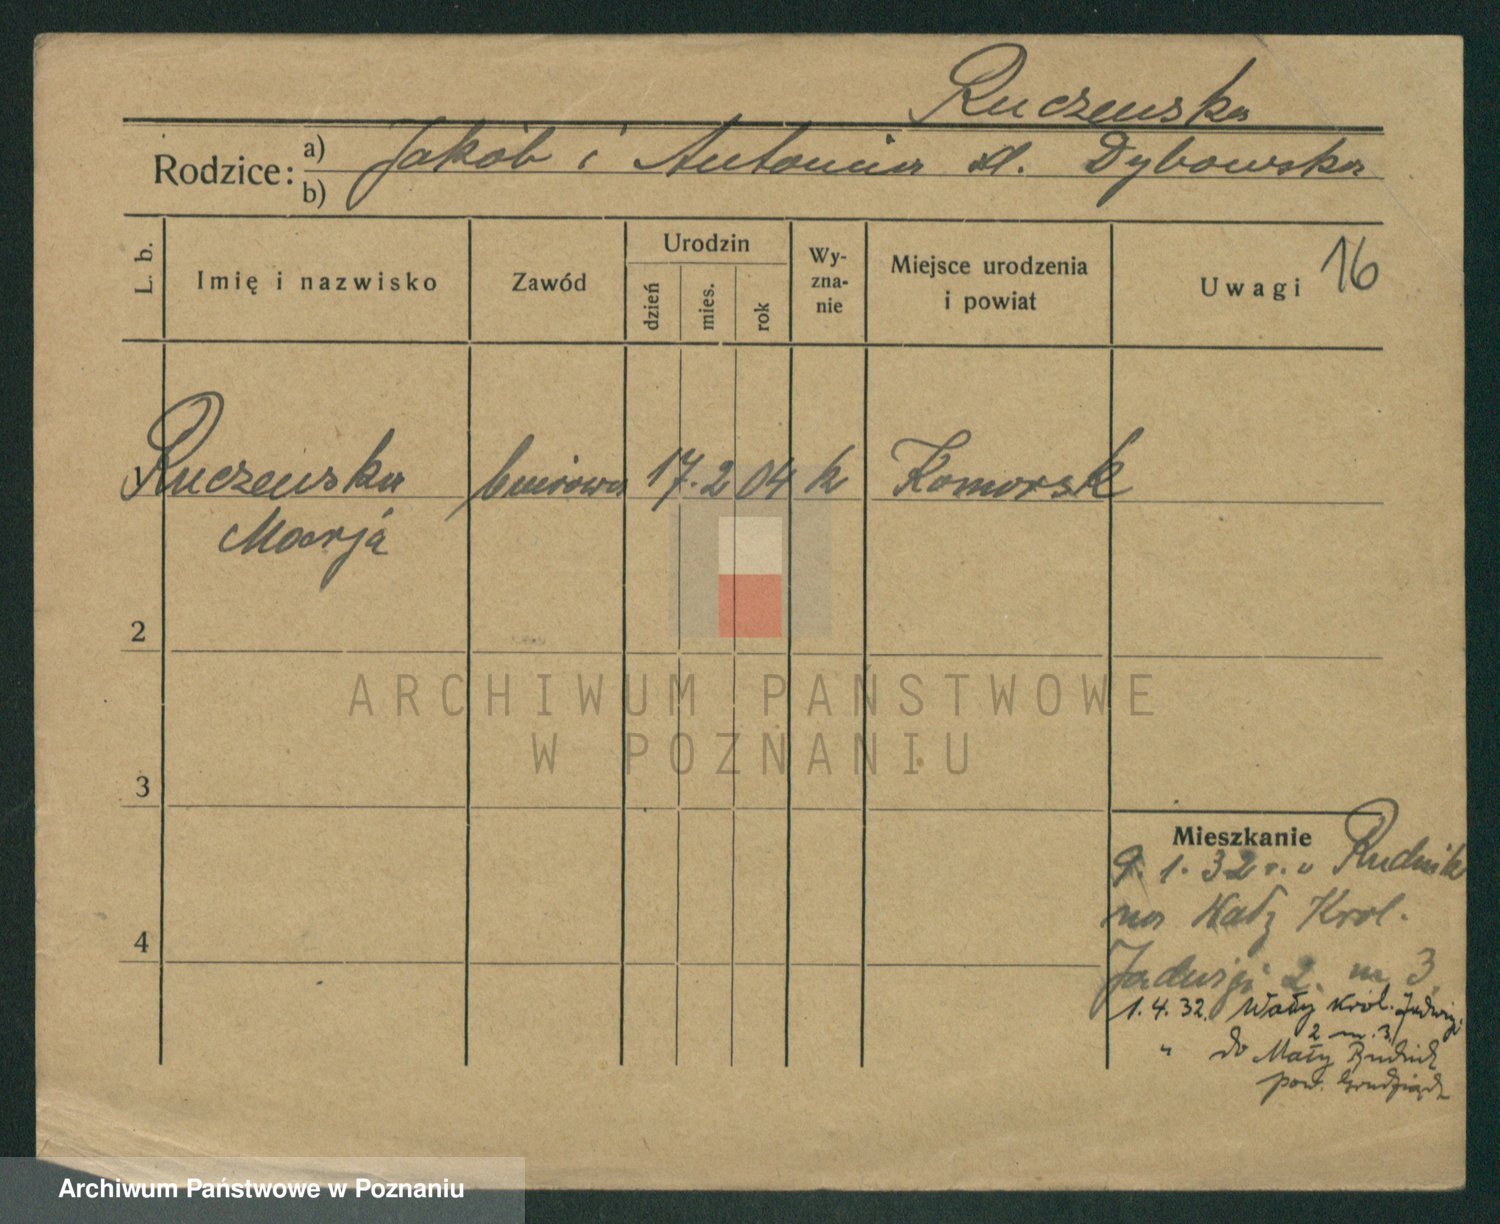 Ruczewska
Rodzice: a) Jakób i Antonia d. Dybowska
b)
L. b.
Imię i nazwisko
Zawód
Urodzin
dzień
mies.
rok
Wy-
zna-
nie
Miejsce urodzenia
i powiat
Uwagi 16
Ruczewska biurowa 17. 2 04 k Komorsk
Marja
2
3
4
Mieszkanie
9. 1. 32 r. v Rudnik
na Wały Krol.
Jadwigi 2. m 3.
1. 4. 32. Wały Król. Jadwigi
2 m. 3
" do Mały Rudnik
pow. Grudziądz
ARCHIWUM PAŃSTWOWE
W POZNANIU
Archiwum Państwowe w Poznaniu